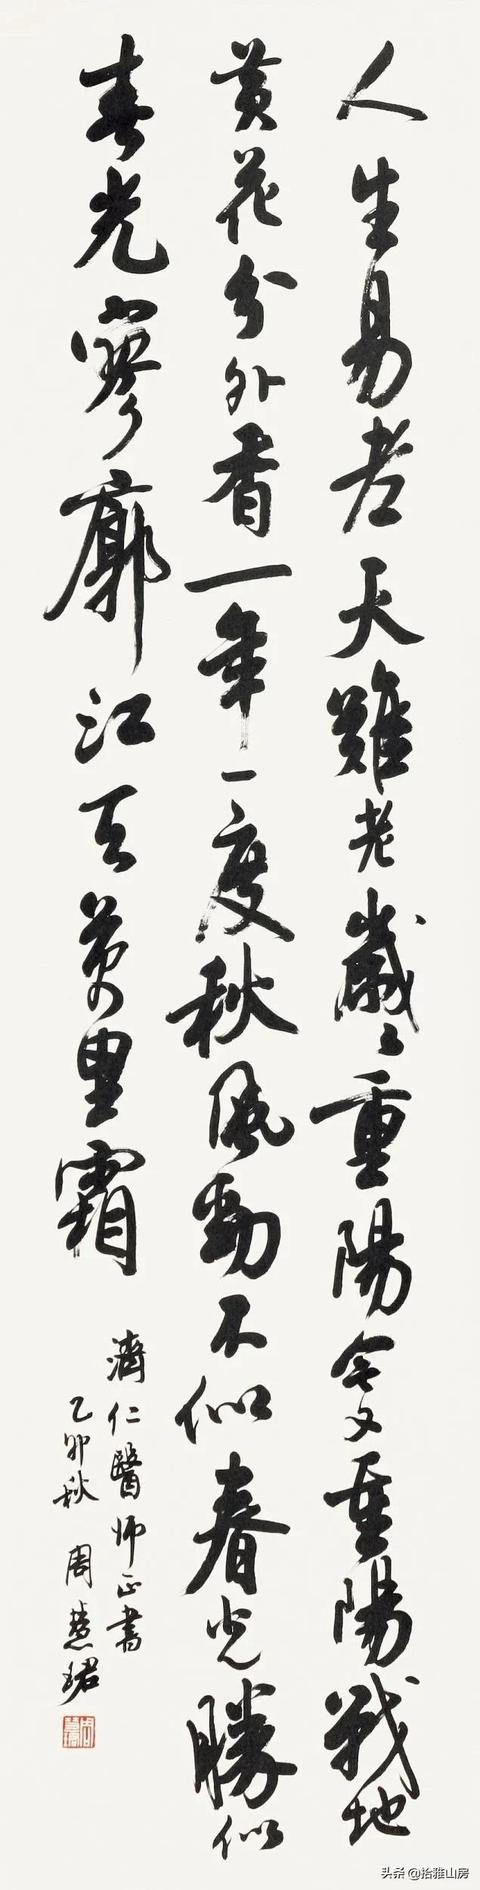 人生易老天難老歲々重陽今又重陽戰地
黄花分外香一年一度秋風勁不似春光勝似
春光寥廓江天萬里霜
濟仁醫師正書
乙卯秋 周慧珺
头条 @拾雅山房